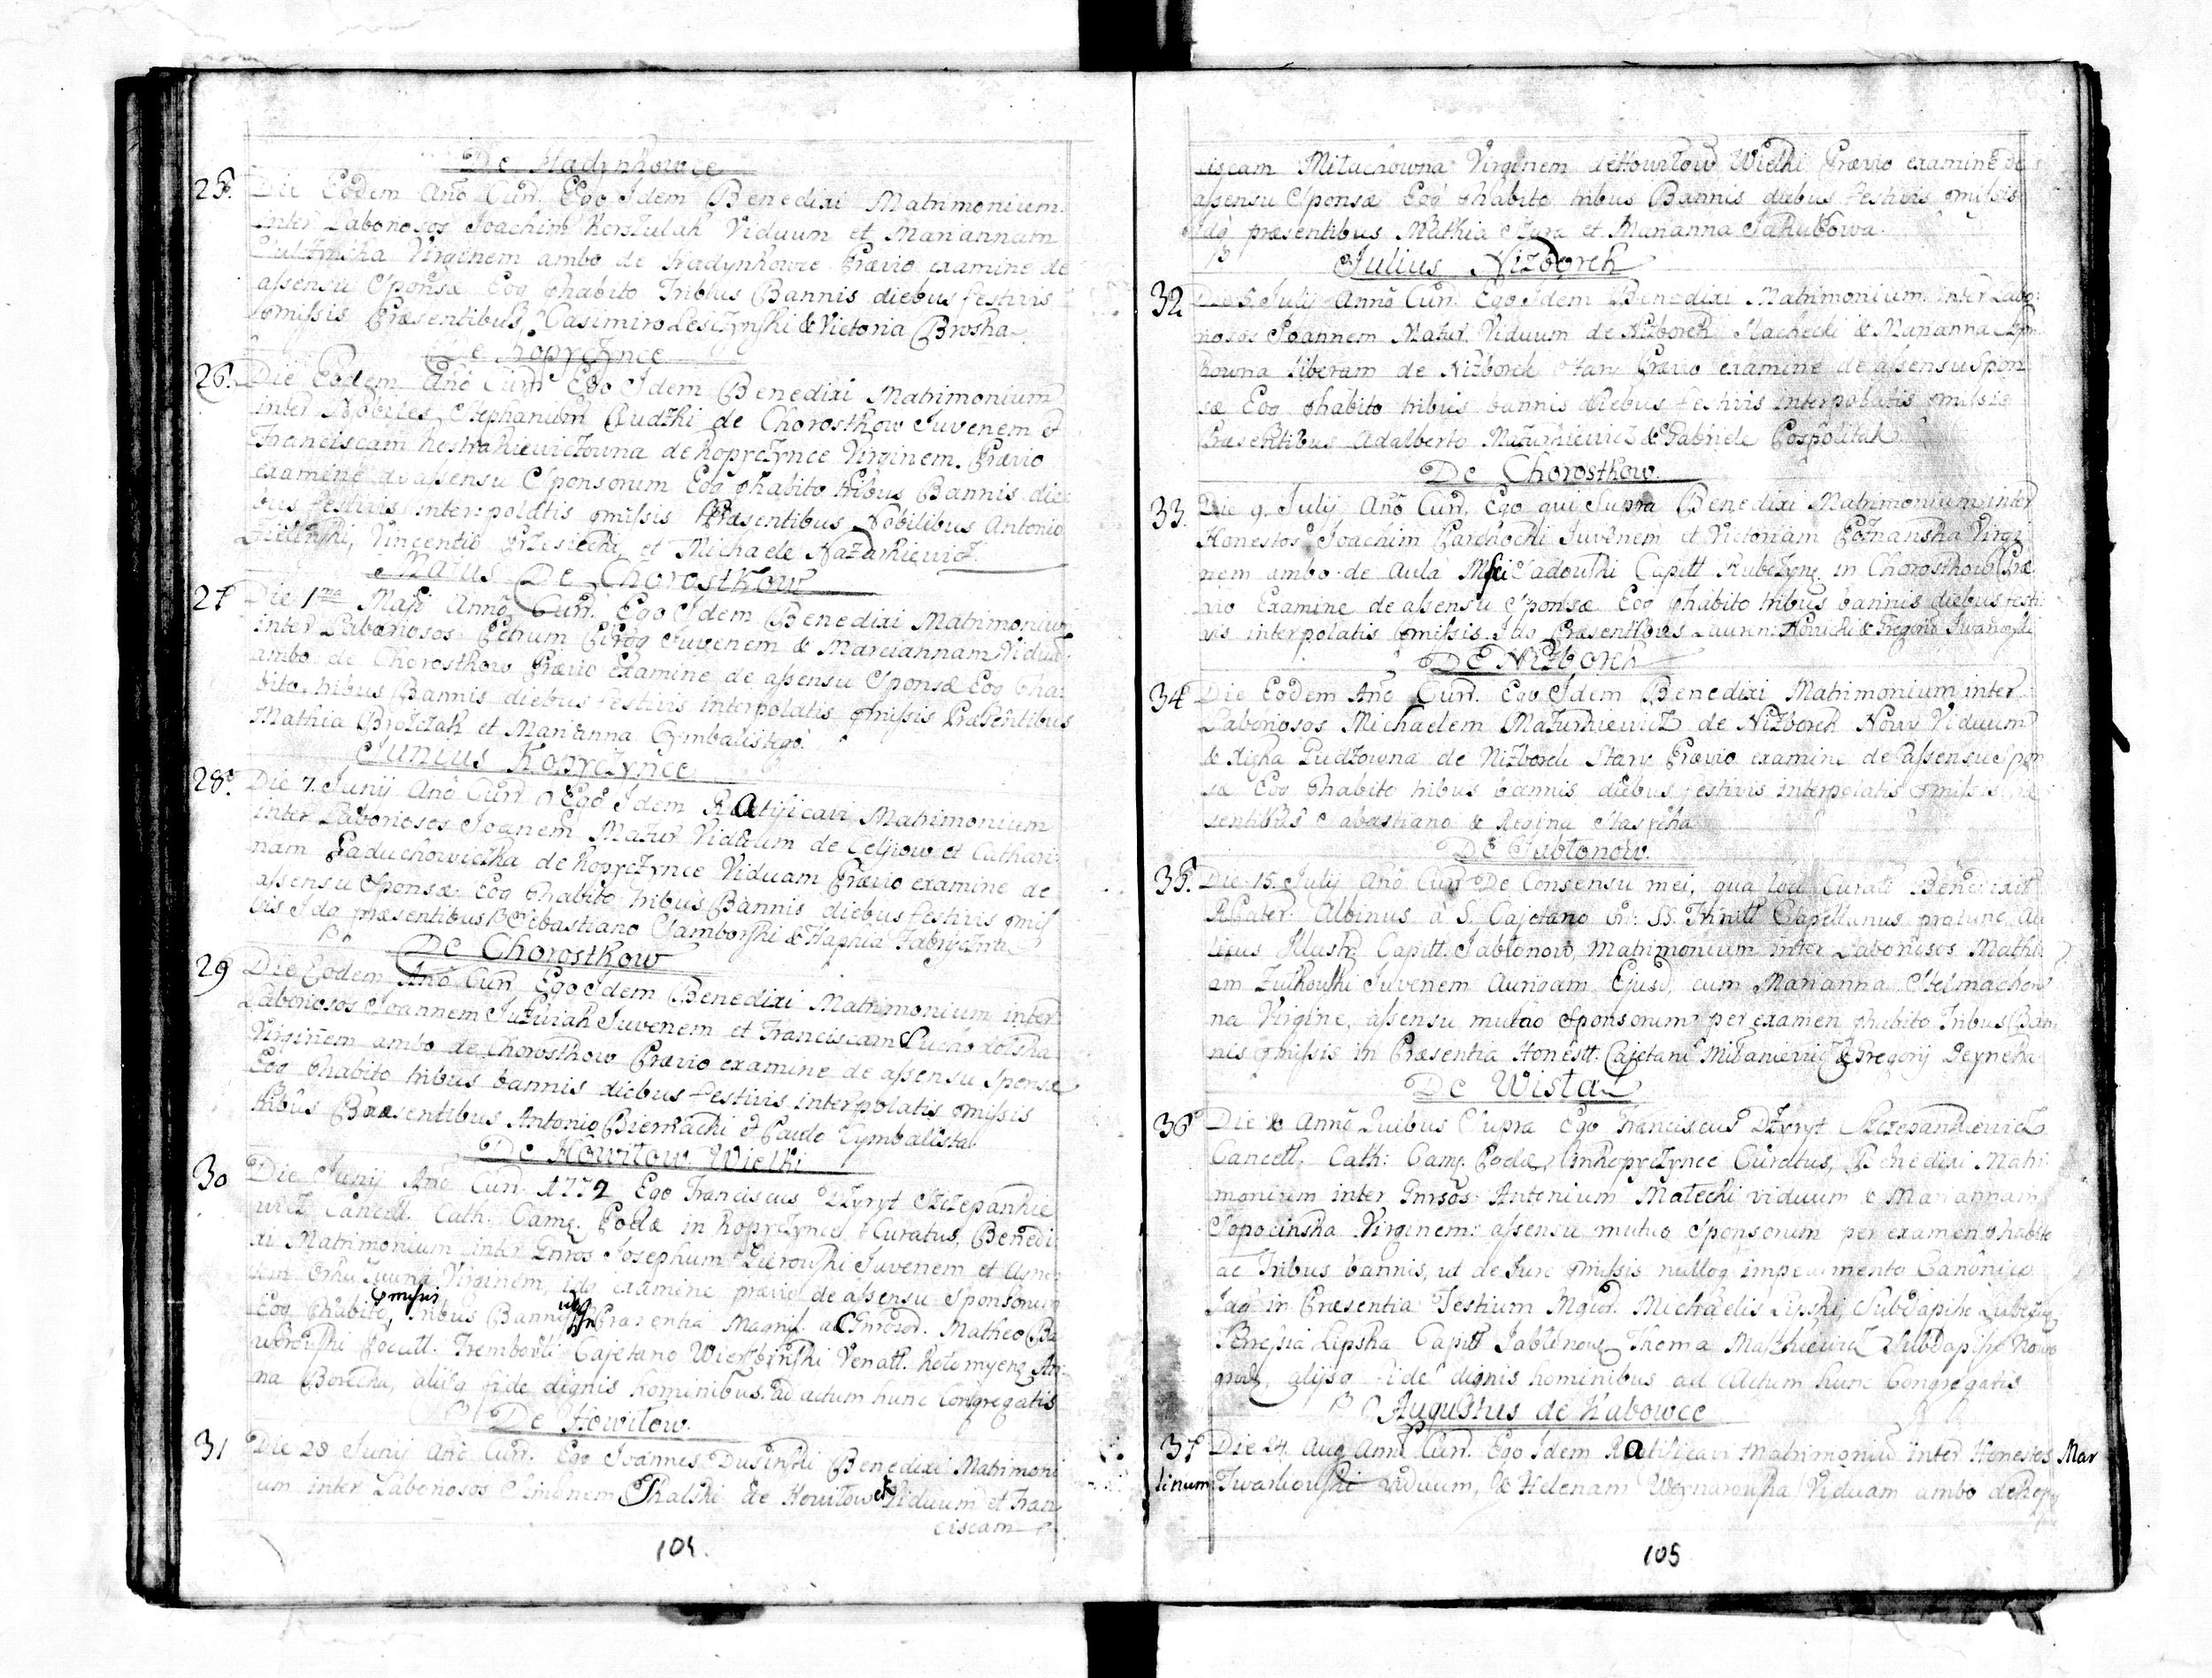 De Hadynkowce
25. Die Eodem Año Curr. Ego Idem Benedixi Matrimonium
inter Laboriosos Joachim Korzulak Viduum et Mariannam
Virginem ambo de Hadynkowce Prævio examine de
assensu Sponsæ Eoq́ ɔhabito Tribus Bannis diebus festivis
ɔmissis Præsentibus, Casimiro Leszzynski & Victoria Broska
De Kopyczynce
26. Die Eodem Año Curr Ego Idem Benedixi Matrimonium
inter Nobiles Stephanum Rudzki de Chorostkow Juvenem &
Franciscam Kostrakiewiczowna de Kopyczynce Virginem. Prævio
examine de assensu Sponsorum Eoq́ ɔhabito tribus Bannis die
bus festivis interpolatis ɔmissis Præsentibus Nobilibus Antonio
Zielinski, Vincentio et Michaele Nazarkiewicz
Maius De Chorostkow
27 Die 1ma Maii Anno Curr. Ego Idem Benedixi Matrimonium
inter Laboriosos Petrum Pirog Juvenem & Mariannam Vidua
ambo de Chorostkow Prævio Examine de assensu Sponsæ Eoq́ ɔha
bito, tribus Bannis diebus festivis interpolatis ɔmissis Præsentibus
Mathia Brozczak et Marianna Cymbalistego
Junius Kopyczynce
28. Die 7. Junij Año Curr Ego Idem Ratificavi Matrimonium
inter Laboriosos Joanem Mazur Viduum de Celjow et Cathari
nam Paduchowiczka de Kopyczynce Viduam Prævio examine de
assensu Sponsæ Eoq́ ɔhabito Tribus Bannis diebus festivis ɔmis
sis Idq́ præsentibus Sebastiano Samborski &
De Chorostkow
29 Die Eodem Año Curr Ego Idem Benedixi Matrimonium inter
Laboriosos Joannem Juvenem et Franciscam
Virginem ambo de Chorostkow Prævio examine de assensu Sponsæ
Eoq́ ɔhabito tribus bannis diebus festivis interpolatis ɔmissis
tribus Præsentibus Antonio Biernacki & Paulo Cymbalista
De Howilow Wielki
30 Die Junij Año Curr. 1772 Ego Franciscus Dzyryt Szczepankie
wicz Cancell. Cath. Came. Podæ in Kopyczynce Curatus, Benedi
xi Matrimonium inter Gnros Josephum Juvenem et Agne
tem Virginem, idq́ examine prævio de assensu Sponsorum
ɔmissis
Eoq́ ɔhabito, tribus Bannis in Præsentia Magnif. ac Gnrosor. Matheo Ba
worowski Trembovli Cajetano Wierzbinski Venatt. Kolomyens An
na Borecka, aliisq́ fide dignis hominibus ad actum hunc Congregatis
De Howilow.
31 Die 28 Junij Año Curr. Ego Joannes Dusinski Benedixi Matrimoni
um inter Laboriosos Simonem Skalski de Howilow Viduum et Fran
ciscam
104.
ciscam Mitachowna Virginem de Howilow Wielki Prævio examine de
assensu Sponsæ Eoq́ ɔhabito tribus Bannis diebus festivis ɔmissis
Idq́ præsentibus Mathia et Marianna Jakubowa.
Julius Nizborck
32. Die 5. Julij Anno Curr. Ego Idem Benedixi Matrimonium inter Labo
riosos Joannem Mazur Viduum de Nizborck Slachecki & Marianna
liberam de Nizborck Stary Prævio examine de assensu Spon
sæ Eoq́ ɔhabito tribus bannis diebus festivis interpolatis ɔmissis
Præsentibus Adalberto Mazurkiewicz & Gabriele Pospolitak
De Chorostkow.
33. Die 9. Julij Año Curr. Ego qui Supra Benedixi Matrimonium inter
Honestos Joachim Juvenem et Victoriam Poznanska Virgi
nem ambo de Aula Capitt in Chorostkow Præ
vio Examine de assensu Sponsæ Eoq́ ɔhabito tribus bannis diebus festi
vis interpolatis ɔmissis Idq́ Præsentibus Lauren: Nowicki & Gregorio Iwanoski
De Nizborck
34 Die Eodem Año Curr. Ego Idem Benedixi Matrimonium inter
Laboriosos Michaelem Mazurkiewicz de Nizborck Nowy Viduum
& Agna Dudzowna de Nizborck Stary Prævio examine de Assensu Spon
sæ Eoq́ ɔhabito tribus bannis diebus festivis interpolatis ɔmissis
sentibus Sabastiano & Regina
De Jablonow.
35. Die 15. Julij Año Curr De Consensu mei, qua loci Curati Benedixit
RPater Albinus a S. Cajetano Or: SS. Trinitt Capellanus protunc Au
licus Illustr. Capitt. Jablonow, Matrimonium inter Laboriosos Mathi
am Zulkouski Juvenem Aurigam Ejusd, cum Marianna Stelmachow
na Virgine, assensu mutuo Sponsorum per examen ɔhabito Tribus Ban
nis ɔmissis in Præsentia Honestt. Cajetani Milaniewicz & Gregorij Deyneka
De Wista
36 Die & Anno Quibus Supra Ego Franciscus Dzyryt Szczepankiewicz
Cancell. Cath: Came. Podæ, in Kopyczynce Curatus, Benedixi Matri
monium inter Gnrsos Antonium Malecki viduum & Mariannam
Sopocinska Virginem: assensu mutuo Sponsorum per examen ɔhabito
ac Tribus bannis, ut de Jure ɔmissis nulloq́ impedimento Canonico
Idq́ in Præsentia Testium Mgcor. Michaelis Lipski, Subdapife
Lipska Capitt Jablonow Thoma Subdapife
aliisq́ fide dignis hominibus ad Actum hunc Congregatis
Augustus de Kabowce
37 Die 24 Aug Anno Curr. Ego Idem Ratificavi Matrimoniu inter Honestos Mar
tinum Iwaskouski viduum, & Helenam Weynarouska Viduam ambo de
105